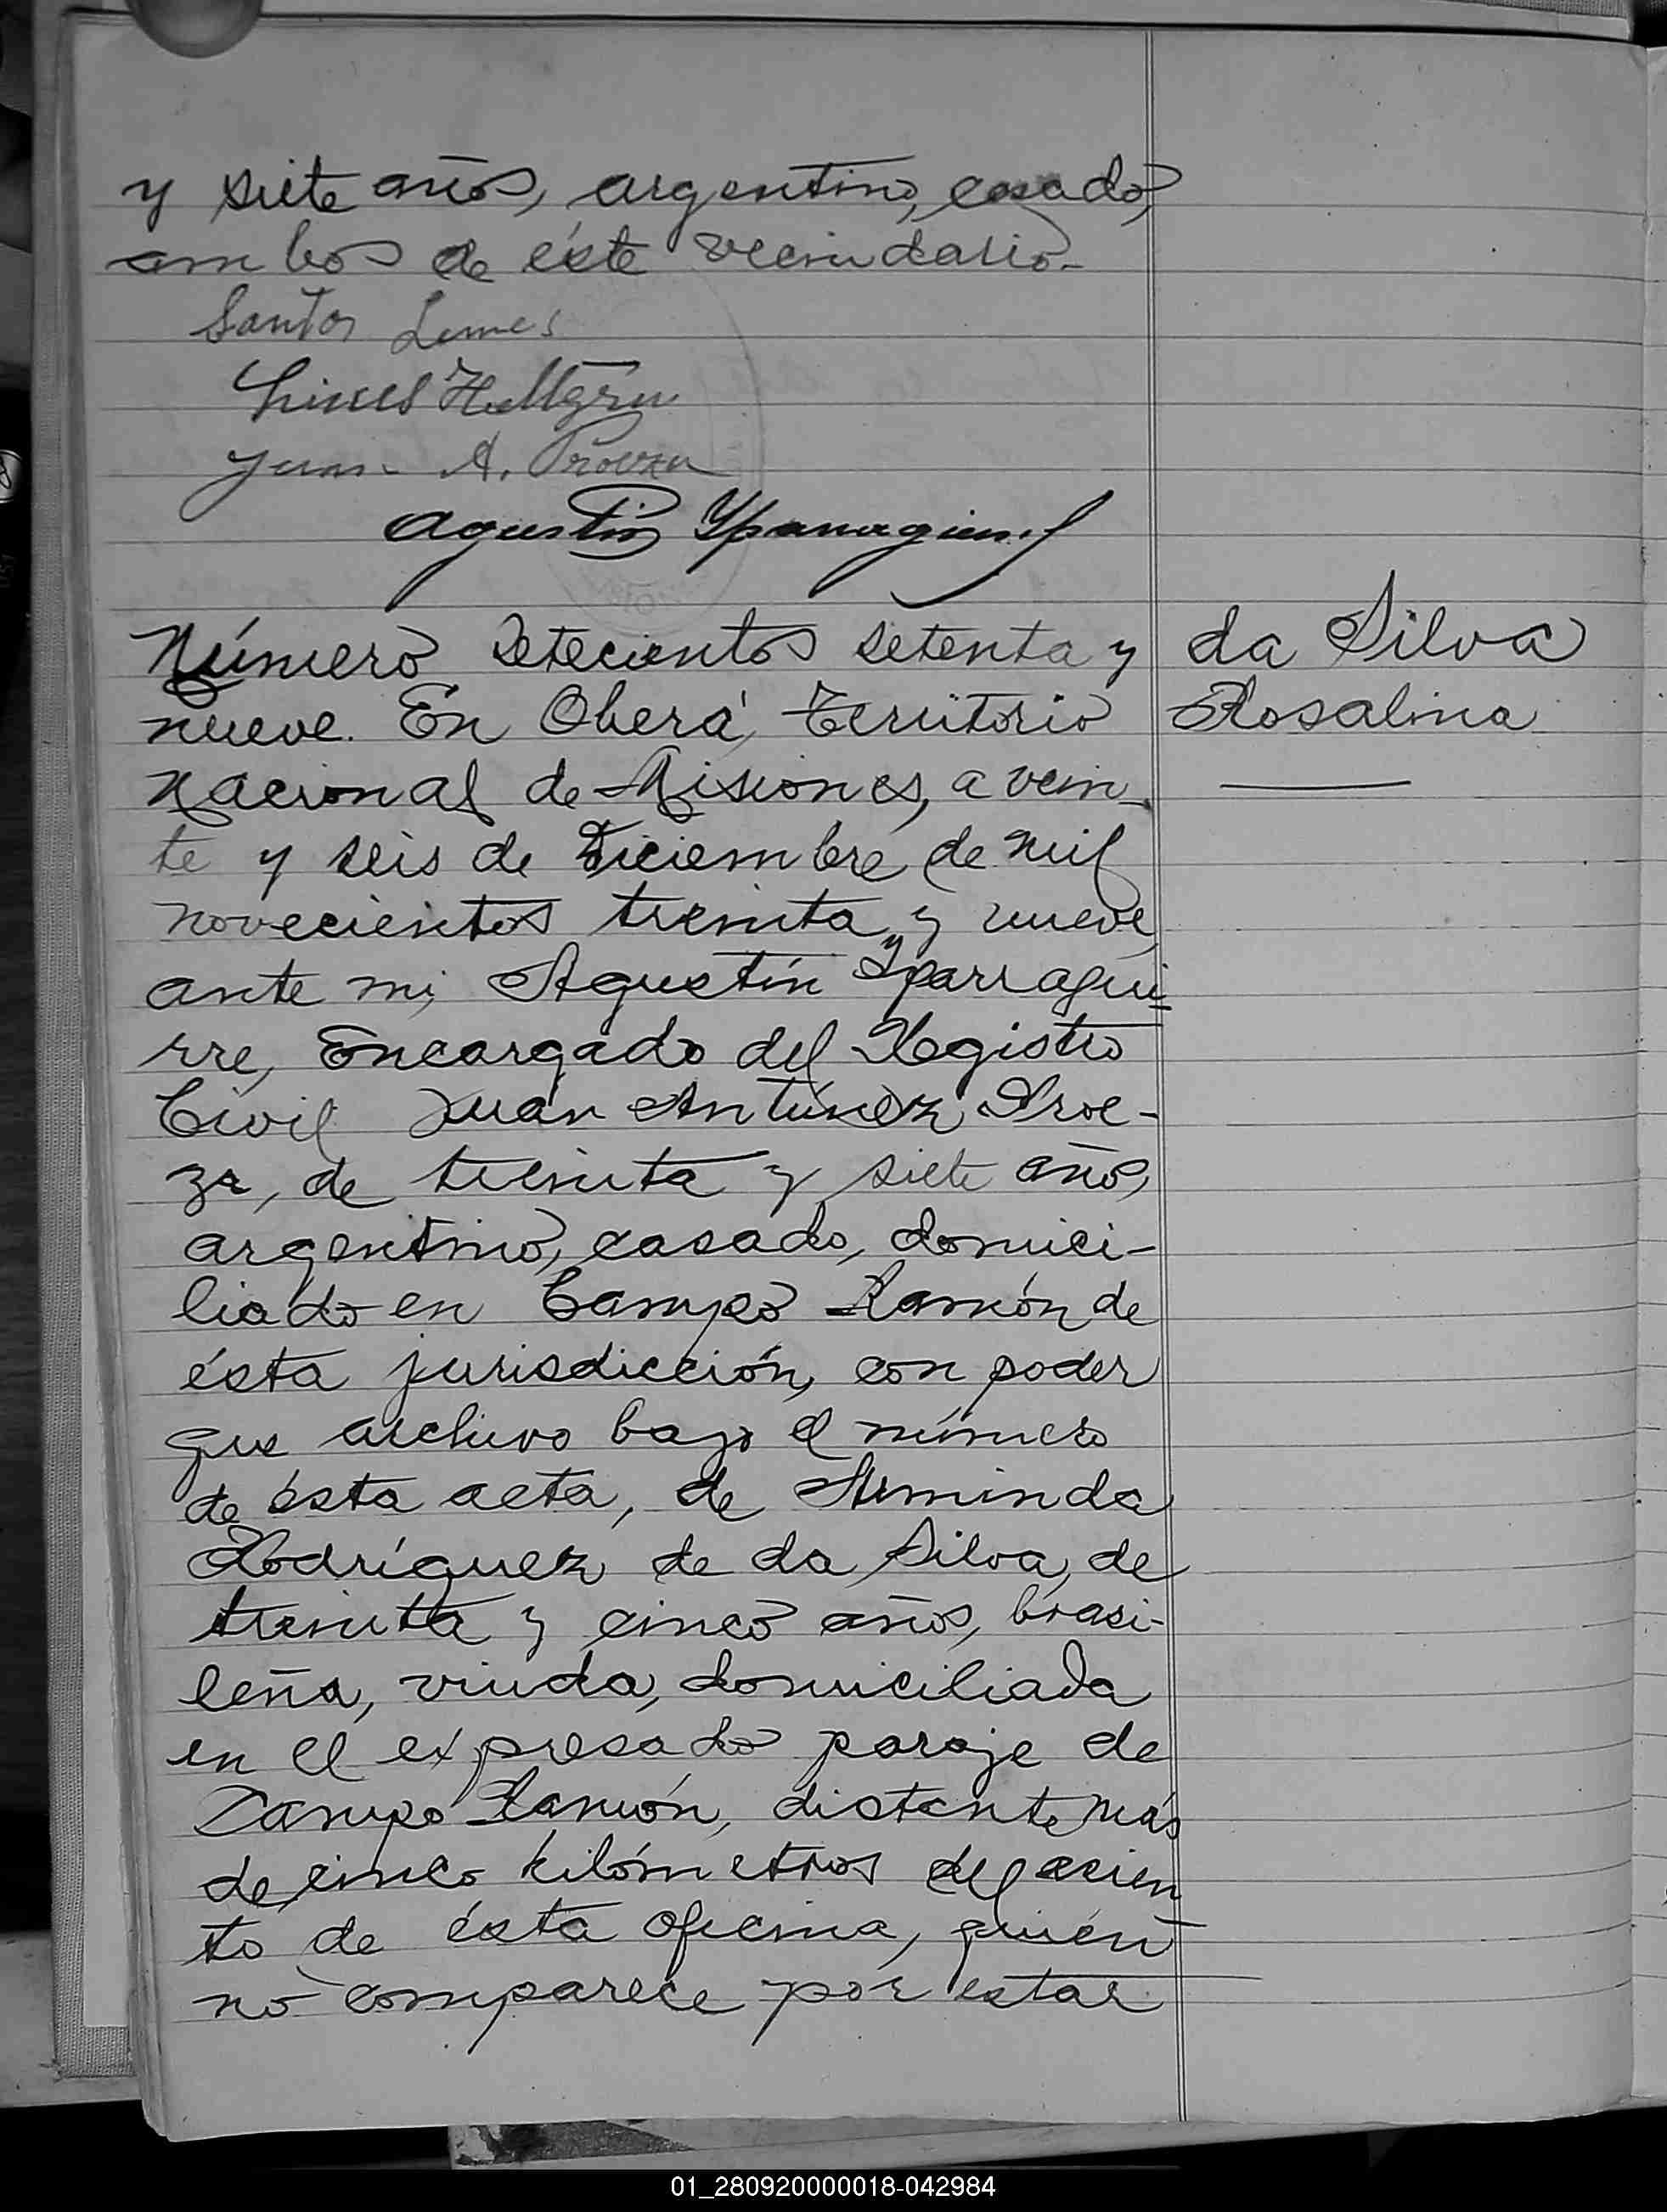 y siete años, argentino, casado,
ambos de éste vecindario.-
Santos Lemes
Juan A. Proeza
Agustín Yparraguirre
Número Setecientos setenta y
da Silva
Rosalina
nueve. En Oberá, territorio
Nacional de Misiones, a vein-
te y seis de Diciembre de mil
novecientos treinta y nueve,
ante mi, Agustín Yparragui-
rre, Encargado del Registro
Civil Juán Antúnez Proe-
za, de treinta y siete años,
argentino, casado, domici-
liado en Campo Ramón de
ésta jurisdicción, con poder
que archivo bajo el número
de ésta acta, de Arminda
Rodríguez de da Silva, de
treinta y cinco años, brasi-
leña, viuda, domiciliada
en el expresado paraje de
Campo Ramón, distante más
de cinco kilómetros del asien
to de ésta oficina, quién
no comparece por estar
01_280920000018-042984